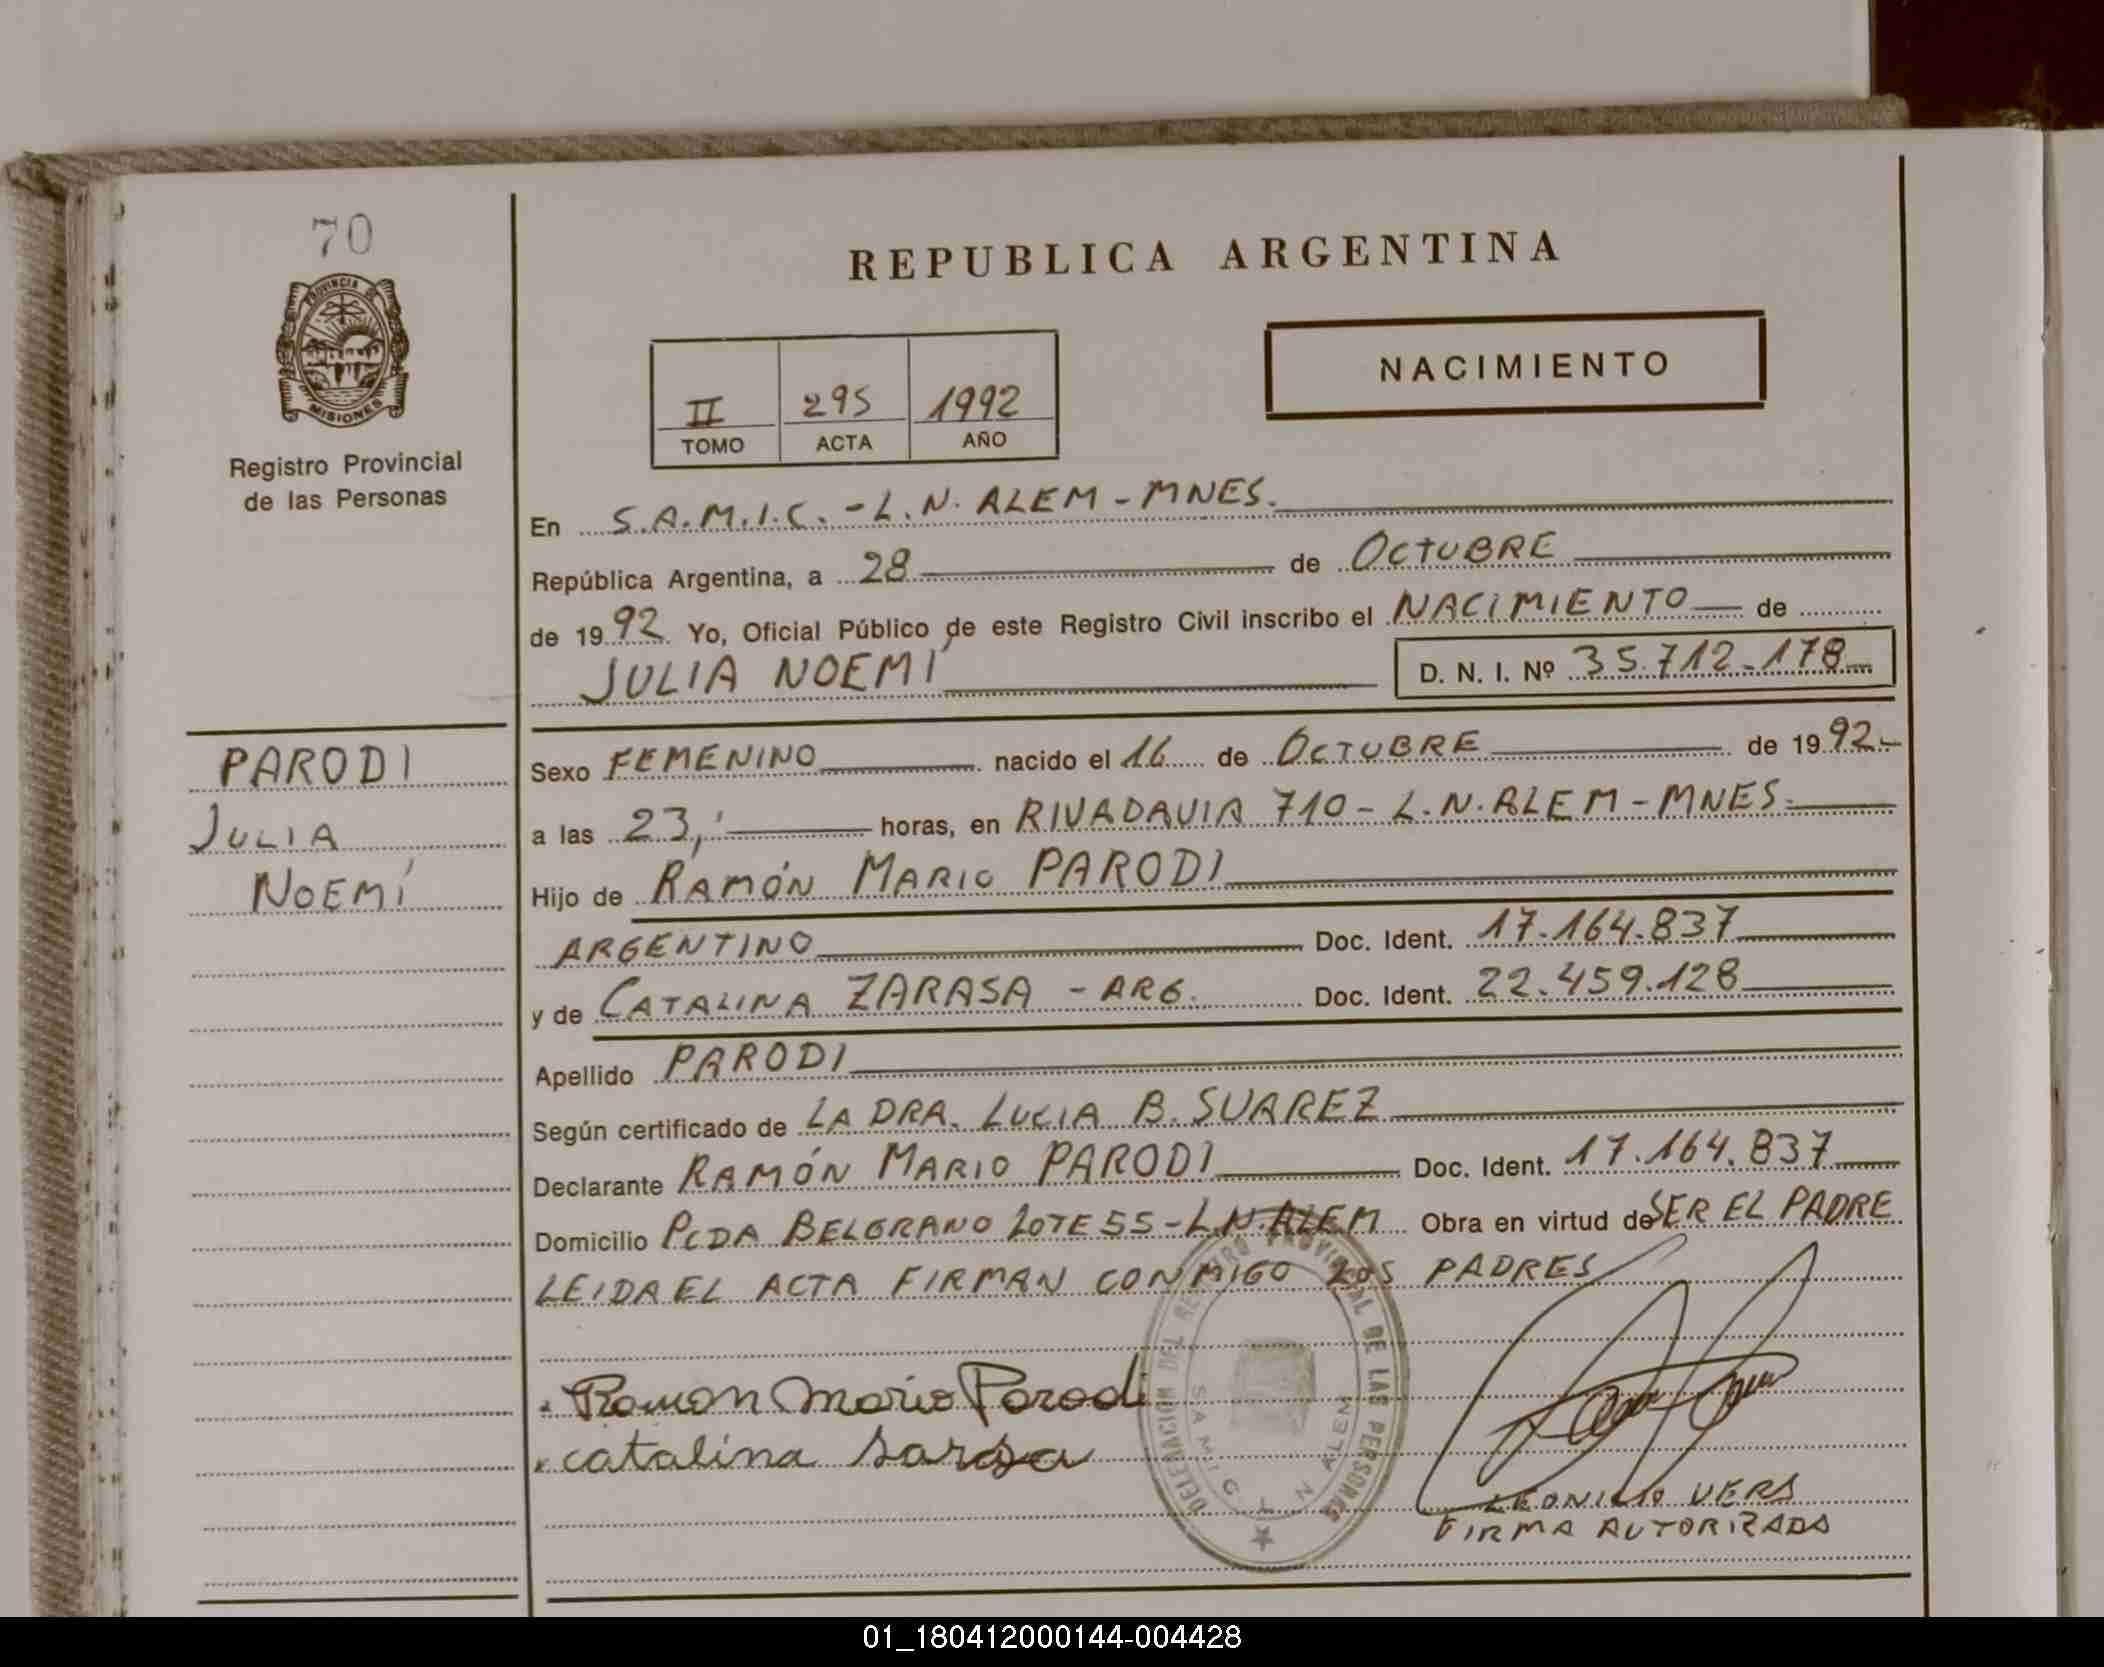 70
PROVINCIA DE
MISIONES
Registro Provincial
de las Personas
REPUBLICA ARGENTINA
II 295 1992
TOMO ACTA AÑO
NACIMIENTO
En S.A.M.I.C. - L. N. ALEM - MNES.
República Argentina, a 28 de OCTUBRE
de 1992 Yo, Oficial Público de este Registro Civil inscribo el NACIMIENTO de
JULIA NOEMÍ D. N. I. Nº 35.712.178
PARODI
JULIA
NOEMÍ
Sexo FEMENINO nacido el 16 de OCTUBRE de 1992.-
a las 23,' horas, en RIVADAVIA 710 - L.N. ALEM - MNES.
Hijo de RAMÓN MARIO PARODI
ARGENTINO Doc. Ident. 17.164.837
y de CATALINA ZARASA - ARG. Doc. Ident. 22.459.128
Apellido PARODI
Según certificado de LA DRA. LUCIA B. SUAREZ
Declarante RAMÓN MARIO PARODI Doc. Ident. 17.164.837
Domicilio PCDA BELGRANO LOTE 55 - L.N. ALEM Obra en virtud de SER EL PADRE
LEIDA EL ACTA FIRMAN CONMIGO LOS PADRES
Ramon Mario Parodi
catalina sarasa
DELEGACION DEL REGISTRO PROVINCIAL DE LAS PERSONAS
SAMIC L N ALEM
VERS
FIRMA AUTORIZADA
01_180412000144-004428